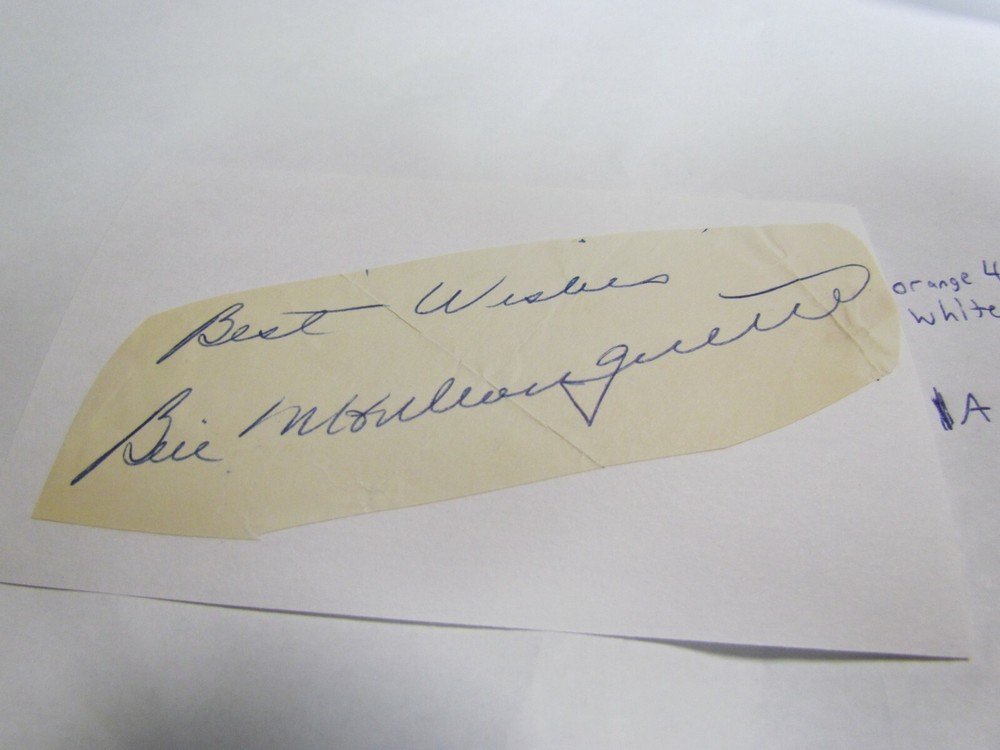 Best Wishes
Bill
orange 4
white
A